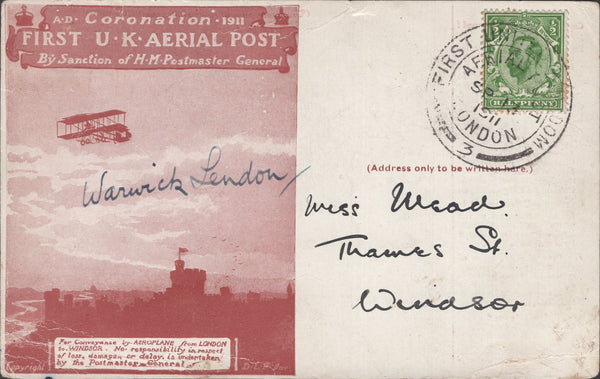 A·D· Coronation ·1911
FIRST U·K·AERIAL POST
By Sanction of H·M·Postmaster General
FIRST UNITED KINGDOM
AERIAL POST
SP
1911
LONDON
3
HALFPENNY
(Address only to be written here.)
Warwick Lendon
Miss Mead.
Thames St.
Windsor
For Conveyance by AEROPLANE from LONDON
to WINDSOR. No responsibility in respect
of loss, damage, or delay, is undertaken
by the Postmaster General
Copyright